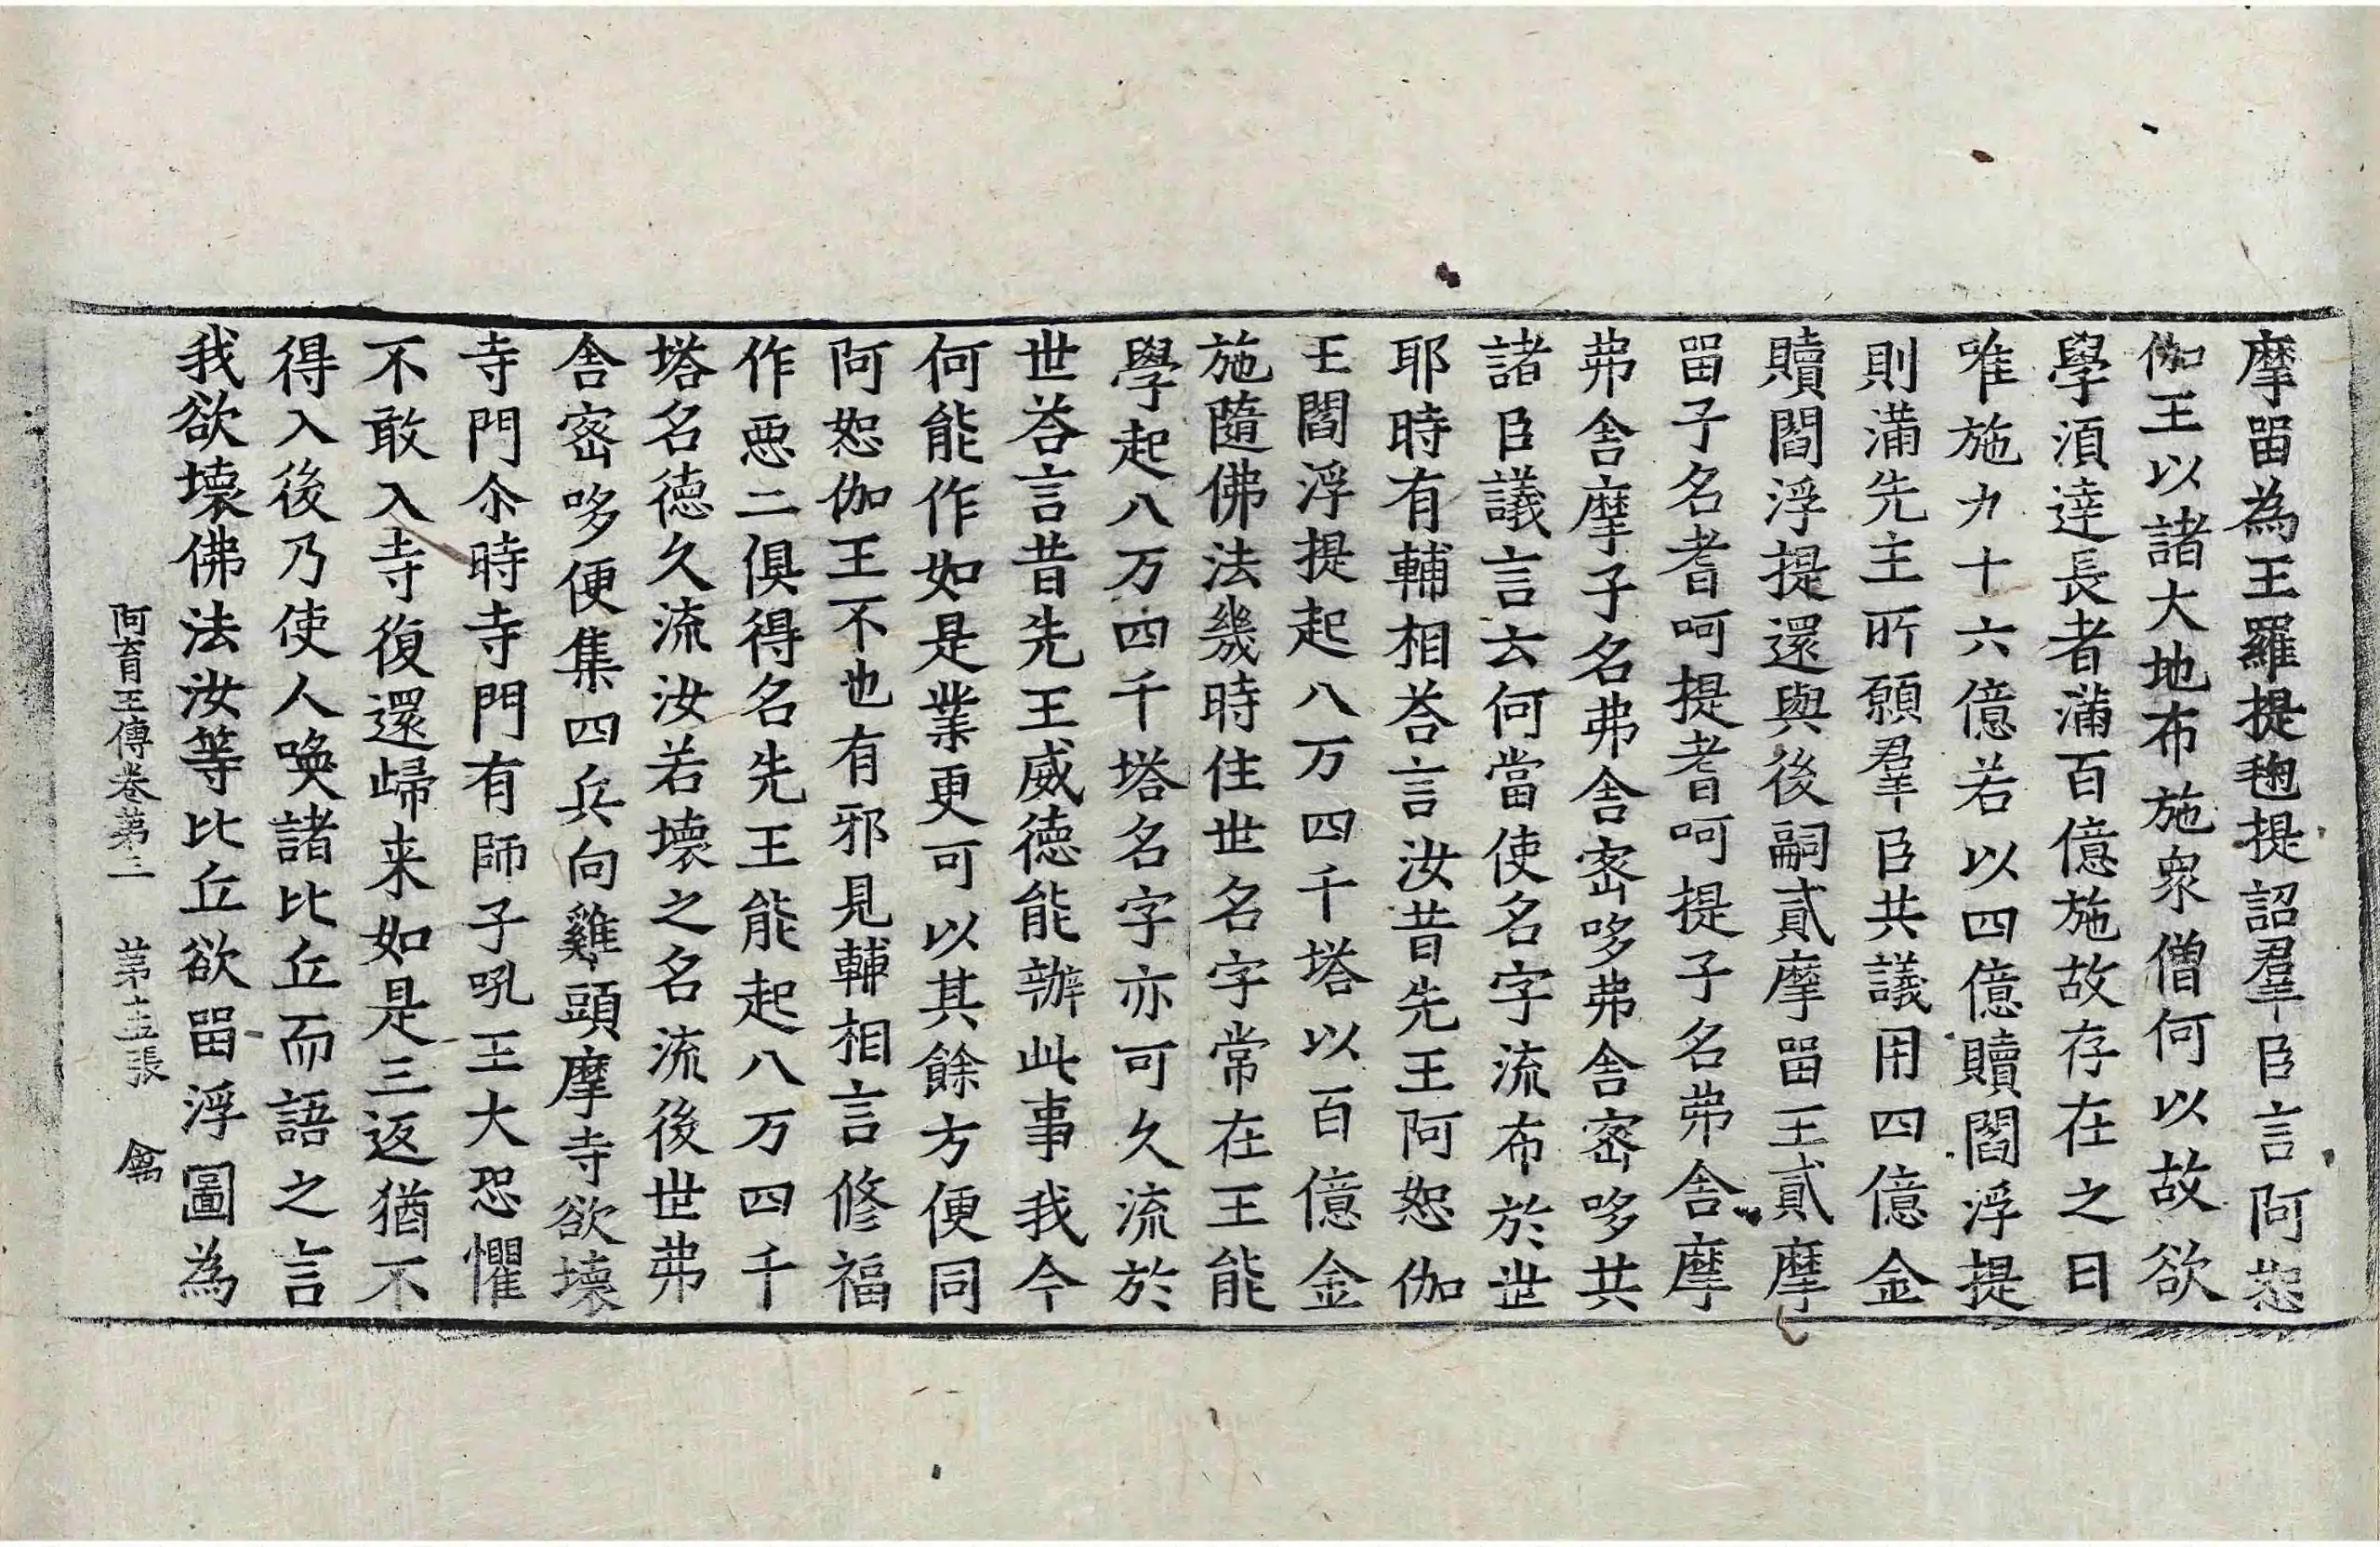 摩畱為王羅提毱提詔羣臣言阿恕
伽王以諸大地布施衆僧何以故欲
學湏達長者滿百億施故存在之日
唯施九十六億若以四億贖閻浮提
則滿先主所願羣臣共議用四億金
贖閻浮提還與後嗣貳摩畱王貳摩
畱子名耆呵提耆呵提子名弗舍摩
弗舍摩子名弗舍宻哆弗舍宻哆共
諸臣議言云何當使名字流布於世
耶時有輔相荅言汝昔先王阿恕伽
王閻浮提起八万四千塔以百億金
施隨佛法幾時住世名字常在王能
學起八万四千塔名字亦可久流於
世荅言昔先王威德能辦此事我今
何能作如是業更可以其餘方便同
阿恕伽王不也有邪見輔相言修福
作惡二俱得名先王能起八万四千
塔名德久流汝若壞之名流後世弗
舍宻哆便集四兵向雞頭摩寺欲壞
寺門尒時寺門有師子吼王大恐懼
不敢入寺復還歸来如是三返猶不
得入後乃使人喚諸比丘而語之言
我欲壞佛法汝等比丘欲畱浮圖為
阿育王傳卷第三　第十五張　禽